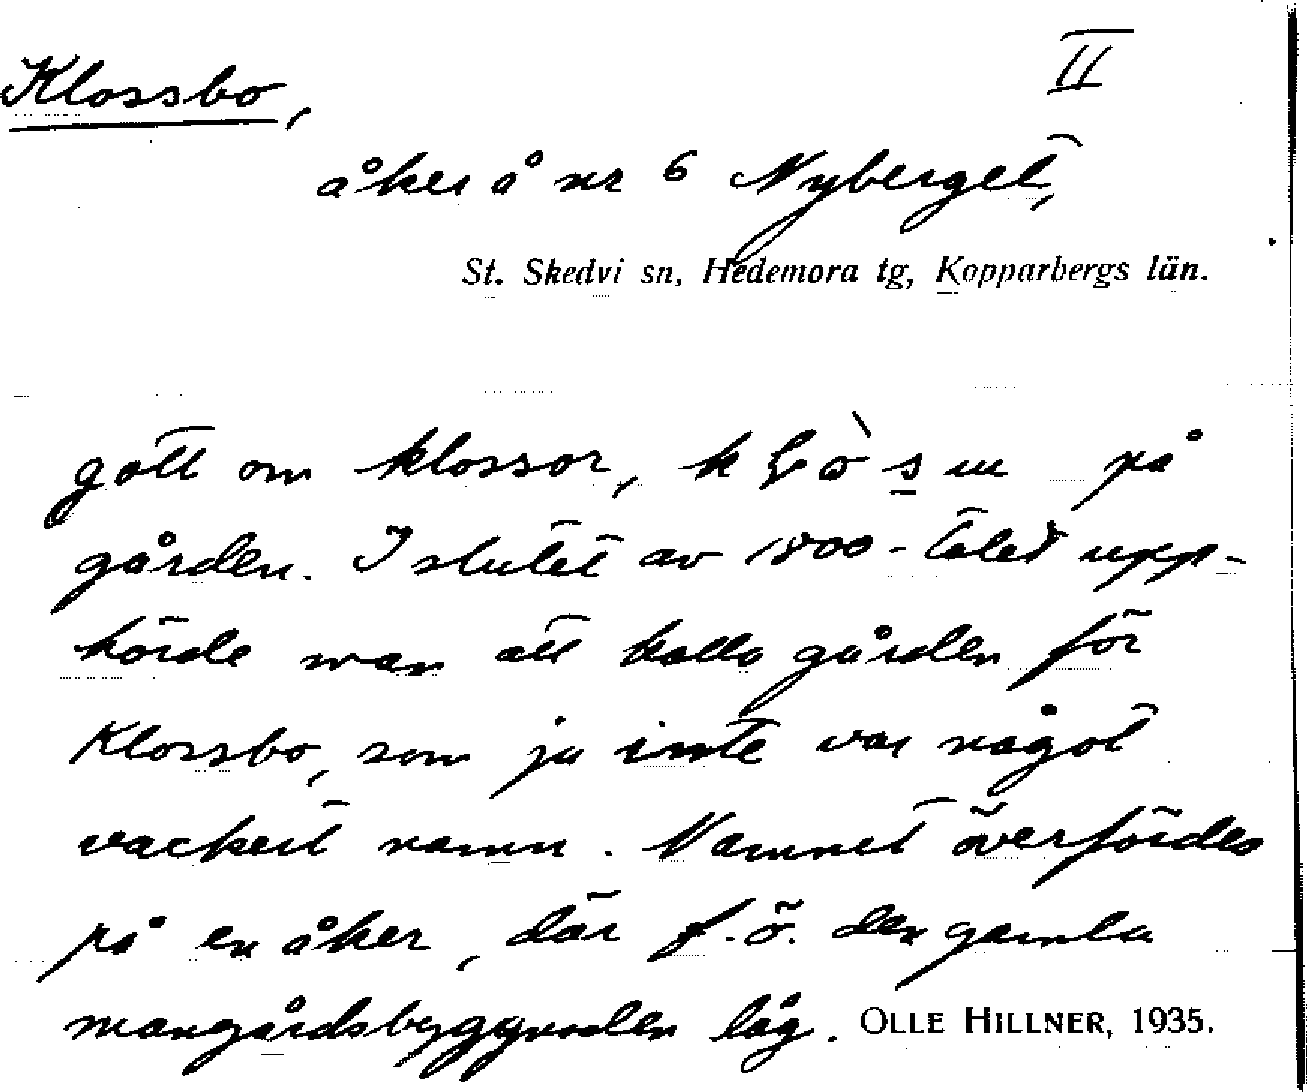 Klossbo, II
åker å nr 6 Nyberget,
St. Skedvi sn, Hedemora tg, Kopparbergs län.
gott om klossor, på
gården. I slutet av 1800-talet upp-
hörde man att kalla gården för
Klossbo, som ju inte var något
vackert namn. Namnet överfördes
på en åker, där f.ö. den gamla
mangårdsbyggnaden låg. OLLE HILLNER, 1935.